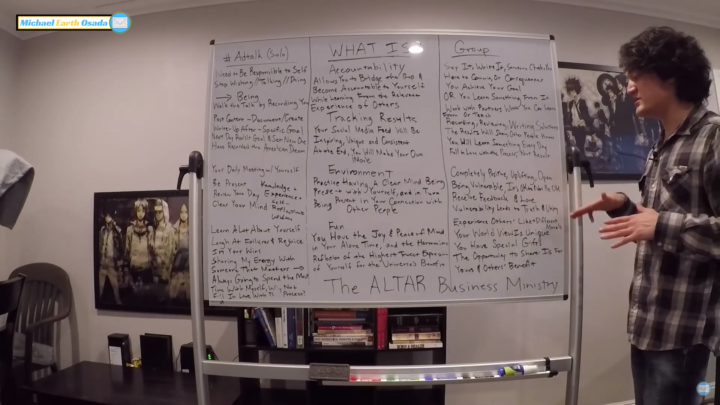 Michael Earth Osada
# AdTalk (Solo)
I Need to Be Responsible to Self
Stop Wishing // Talking // Doing
→ Being
Walk the Talk by Recording You
Post Content - Document/Create
Write-Up After - Specific Goal
Have Recorded the American Dream
Your Daily Meeting w/ Yourself
Be Present
Review Your Day
Clear Your Mind
Knowledge &
Experience
Self-
Reflections
Wisdom
Learn A Lot About Yourself
Laugh At Failures & Rejoice
In Your Wins
Sharing My Energy With
Someone That Matters →
Always Going to Spend the Most
Time With Myself, Why Not
Fall In Love With The Process?
WHAT IS
Accountability
Allows You to Bridge the Gap &
Become Accountable to Yourself
While Learning From the Relevant
Experience of Others
Tracking Results
Your Social Media Feed Will Be
Inspiring, Unique and Consistent
At the End, You Will Make Your Own
Movie
Environment
Practice Having A Clear Mind Being
Present w/ Yourself, and in Turn
Being Present in Your Connection with
Other People
Fun
You Have the Joy & Peace of Mind
in Your Alone Time, and the Harmonious
Reflection of the Highest Truest Expression
of Yourself for the Universe's Benefit
Group
Say It, Write It,
Have to Coming Or Consequence
You Achieve Your Goal
OR You Learn Something From It
Work With Partners What You Can Learn
From Or Teach
Recording, Reviewing, Writing Solutions
The Results Will Show Other People How
You Will Learn Something Every Day
Fall in Love with the Process, Your Results
Completely Being Uplifting, Open
Being Vulnerable Is
Receive Feedback & Love
Vulnerability Leads to Truth & Unity
Experience Others' Like + Different
Your World View Is Unique
You Have Special Gifts
The Opportunity to Share Is For
Yours & Others' Benefit
The ALTAR Business Ministry